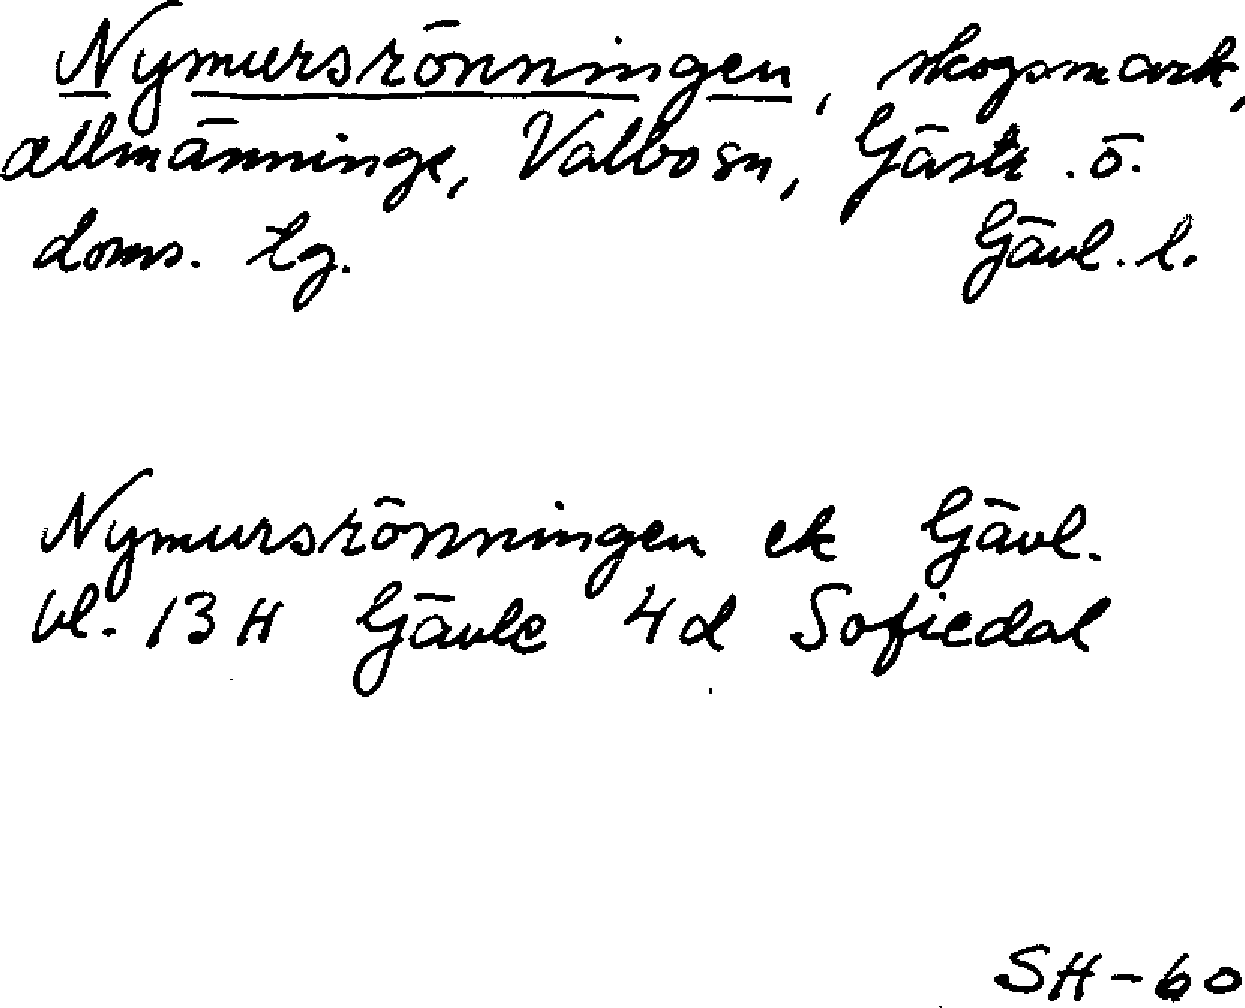 Nymursrönningen, skogsmark,
allmänninge, Valbo sn, Gästr. ö.
doms. tg. Gävl. l.
Nymursrönningen ek Gävl.
vl. 13 H Gävle 4 d Sofiedal
SH-60